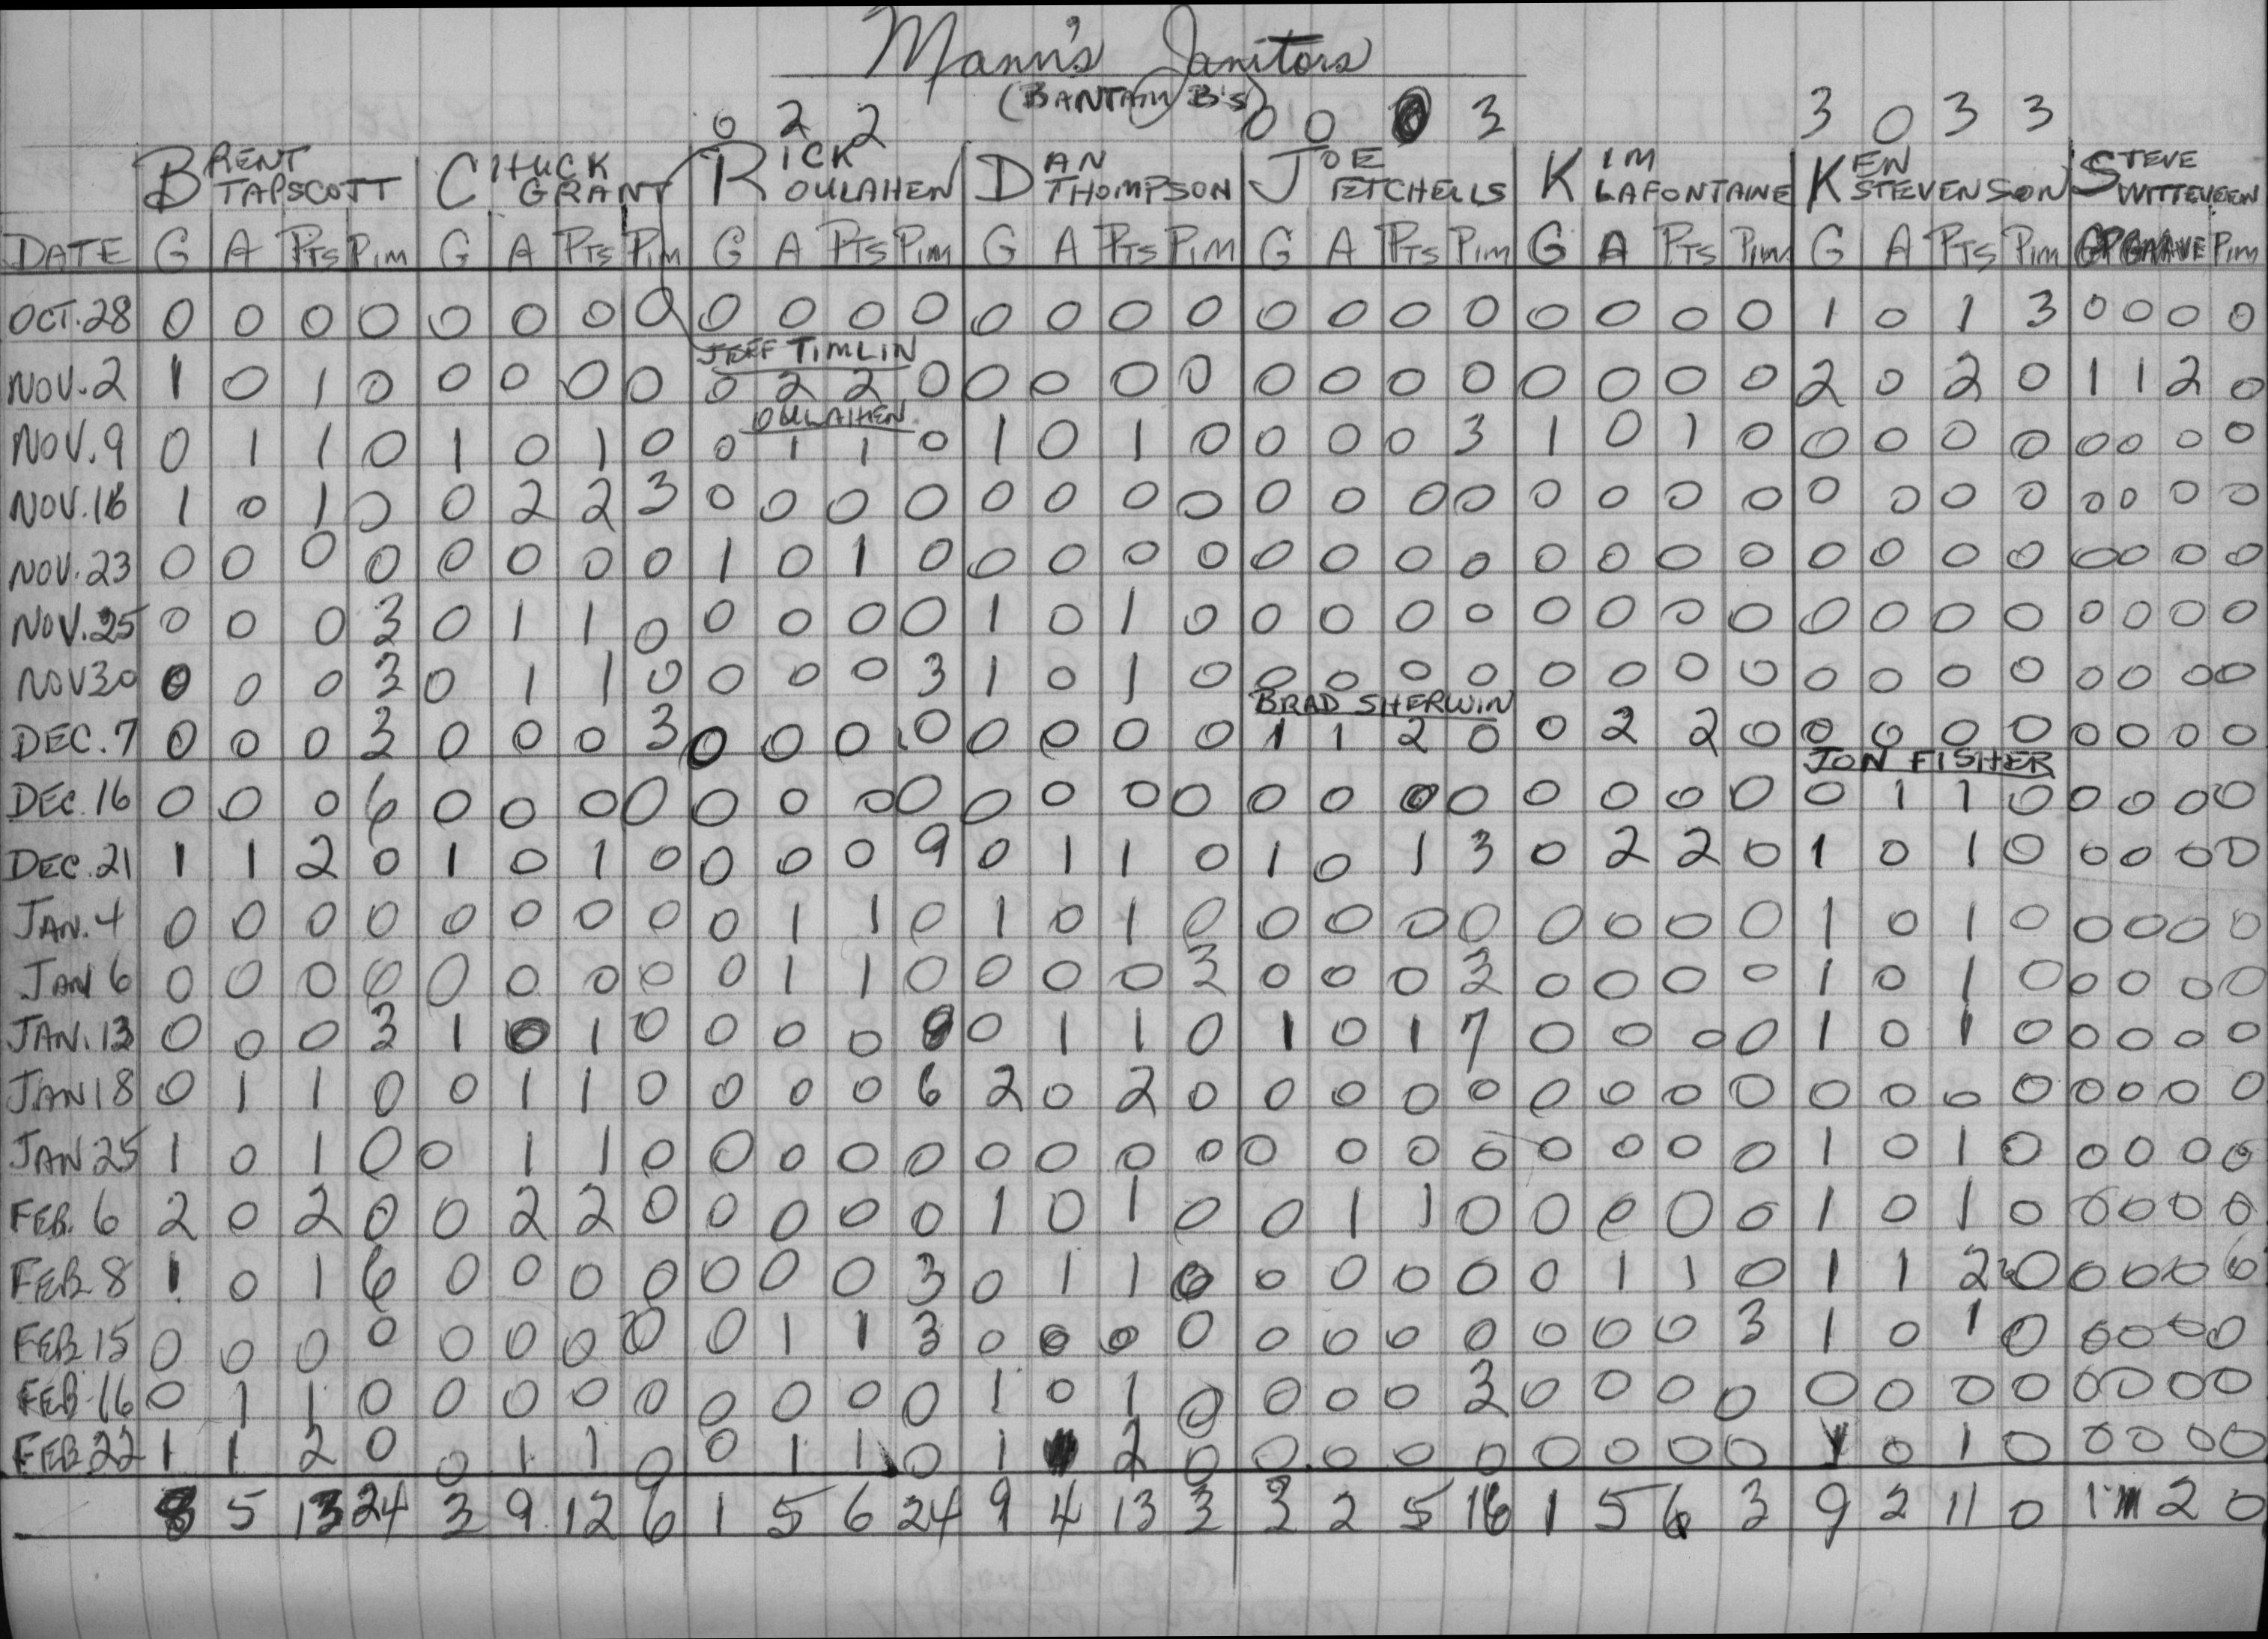 Mann's Janitors
(BANTAM B's)
0 2 2 0 0 0 3 3 0 3 3
BRENT TAPSCOTT CHUCK GRANT RICK OULAHEN DAN THOMPSON JOE PETCHELLS KIM LAFONTAINE KEN STEVENSON STEVE WITTEVEEN
DATE G A PTS PIM G A PTS PIM G A PTS PIM G A PTS PIM G A PTS PIM G A PTS PIM G A PTS PIM PIM
OCT. 28 0 0 0 0 0 0 0 0 0 0 0 0 0 0 0 0 0 0 0 0 0 0 0 0 1 0 1 3 0 0 0 0
JEFF TIMLIN
NOV. 2 1 0 1 0 0 0 0 0 0 2 2 0 0 0 0 0 0 0 0 0 0 0 0 0 2 0 2 0 1 1 2 0
OULAHEN
NOV. 9 0 1 1 0 1 0 1 0 0 1 1 0 1 0 1 0 0 0 0 3 1 0 1 0 0 0 0 0 0 0 0 0
NOV. 16 1 0 1 0 0 2 2 3 0 0 0 0 0 0 0 0 0 0 0 0 0 0 0 0 0 0 0 0 0 0 0 0
NOV. 23 0 0 0 0 0 0 0 0 1 0 1 0 0 0 0 0 0 0 0 0 0 0 0 0 0 0 0 0 0 0 0 0
NOV. 25 0 0 0 3 0 1 1 0 0 0 0 0 1 0 1 0 0 0 0 0 0 0 0 0 0 0 0 0 0 0 0 0
NOV 30 0 0 0 3 0 1 1 0 0 0 0 3 1 0 1 0 0 0 0 0 0 0 0 0 0 0 0 0 0 0 0 0
BRAD SHERWIN
DEC. 7 0 0 0 3 0 0 0 3 0 0 0 0 0 0 0 0 1 1 2 0 0 2 2 0 0 0 0 0 0 0 0 0
JON FISHER
DEC. 16 0 0 0 6 0 0 0 0 0 0 0 0 0 0 0 0 0 0 0 0 0 0 0 0 0 1 1 0 0 0 0 0
DEC. 21 1 1 2 0 1 0 1 0 0 0 0 9 0 1 1 0 1 0 1 3 0 2 2 0 1 0 1 0 0 0 0 0
JAN. 4 0 0 0 0 0 0 0 0 0 1 1 0 1 0 1 0 0 0 0 0 0 0 0 0 1 0 1 0 0 0 0 0
JAN 6 0 0 0 0 0 0 0 0 0 1 1 0 0 0 0 3 0 0 0 3 0 0 0 0 1 0 1 0 0 0 0 0
JAN. 13 0 0 0 3 1 0 1 0 0 0 0 0 0 1 1 0 1 0 1 7 0 0 0 0 1 0 1 0 0 0 0 0
JAN 18 0 1 1 0 0 1 1 0 0 0 0 6 2 0 2 0 0 0 0 0 0 0 0 0 0 0 0 0 0 0 0 0
JAN 25 1 0 1 0 0 1 1 0 0 0 0 0 0 0 0 0 0 0 0 0 0 0 0 0 1 0 1 0 0 0 0 0
FEB. 6 2 0 2 0 0 2 2 0 0 0 0 0 1 0 1 0 0 1 1 0 0 0 0 0 1 0 1 0 0 0 0 0
FEB 8 1 0 1 6 0 0 0 0 0 0 0 3 0 1 1 0 0 0 0 0 0 1 1 0 1 1 2 0 0 0 0 0
FEB 15 0 0 0 0 0 0 0 0 0 1 1 3 0 0 0 0 0 0 0 0 0 0 0 3 1 0 1 0 0 0 0 0
FEB 16 0 1 1 0 0 0 0 0 0 0 0 0 1 0 1 0 0 0 0 3 0 0 0 0 0 0 0 0 0 0 0 0
FEB. 22 1 1 2 0 0 1 1 0 0 1 1 0 1 2 0 0 0 0 0 0 0 0 0 1 0 1 0 0 0 0 0
8 5 13 24 3 9 12 6 1 5 6 24 9 4 13 3 3 2 5 16 1 5 6 3 9 2 11 0 1 1 2 0